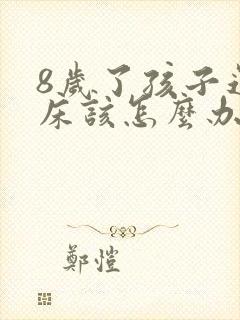 8歲了孩子還
床該怎麼办
鄭愷